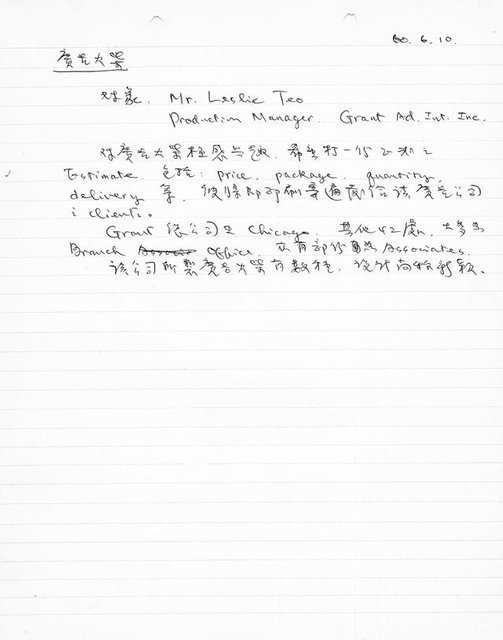 60. 6. 10.
廣告火柴
对象: Mr. Leslie Teo
Production Manager. Grant Ad. Int. Inc.
对廣告火柴極感兴趣, 希望打一份正式之
Estimate 包括: price, package, quantity,
delivery 等, 彼將即印刷寄遍成给該廣告公司
之 clients.
Grant 總公司在 Chicago. 其他42處, 大多为
Branch Office, 亦有部份為 Associates.
該公司所製廣告火柴有數種, 設計尚称新颖.